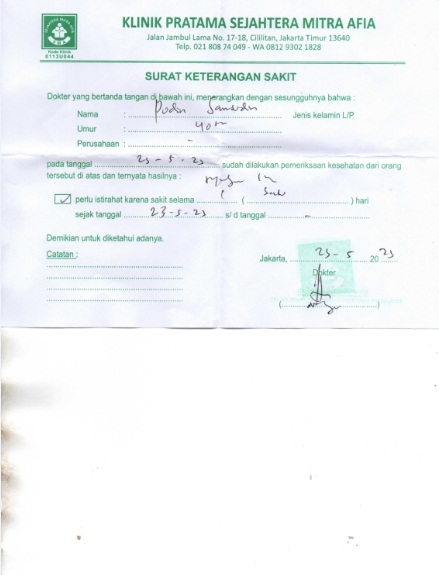 KLINIK PRATAMA SEJAHTERA MITRA AFIA
Jalan Jambul Lama No. 17-18, Cililitan, Jakarta Timur 13640
Telp. 021 808 74 049 - WA 0812 9302 1828
SURAT KETERANGAN SAKIT
Dokter yang bertanda tangan di bawah ini, menerangkan dengan sesungguhnya bahwa :
Nama : Jenis kelamin L/P
Umur : 40
Perusahaan : -
pada tanggal 23-5-23 sudah dilakukan pemeriksaan kesehatan dari orang
tersebut di atas dan ternyata hasilnya :
perlu istirahat karena sakit selama 1 ( ) hari
sejak tanggal 23-5-23 s/d tanggal -
Demikian untuk diketahui adanya.
Catatan :
Jakarta, 23-5 20 23
Dokter
( )